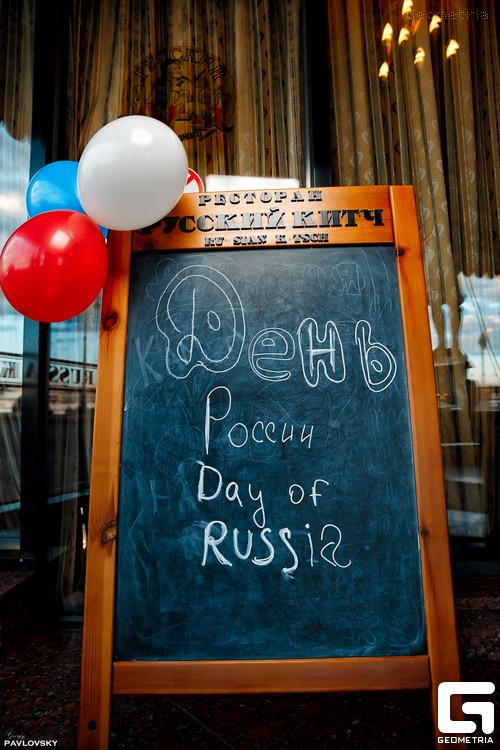 geometria
РУССКИЙ
РЕСТОРАН
РУССКИЙ КИТЧ
RU SIAN K TSCH
RUSSIA
День
России
Day of
Russia
PAVLOVSKY
GEOMETRIA